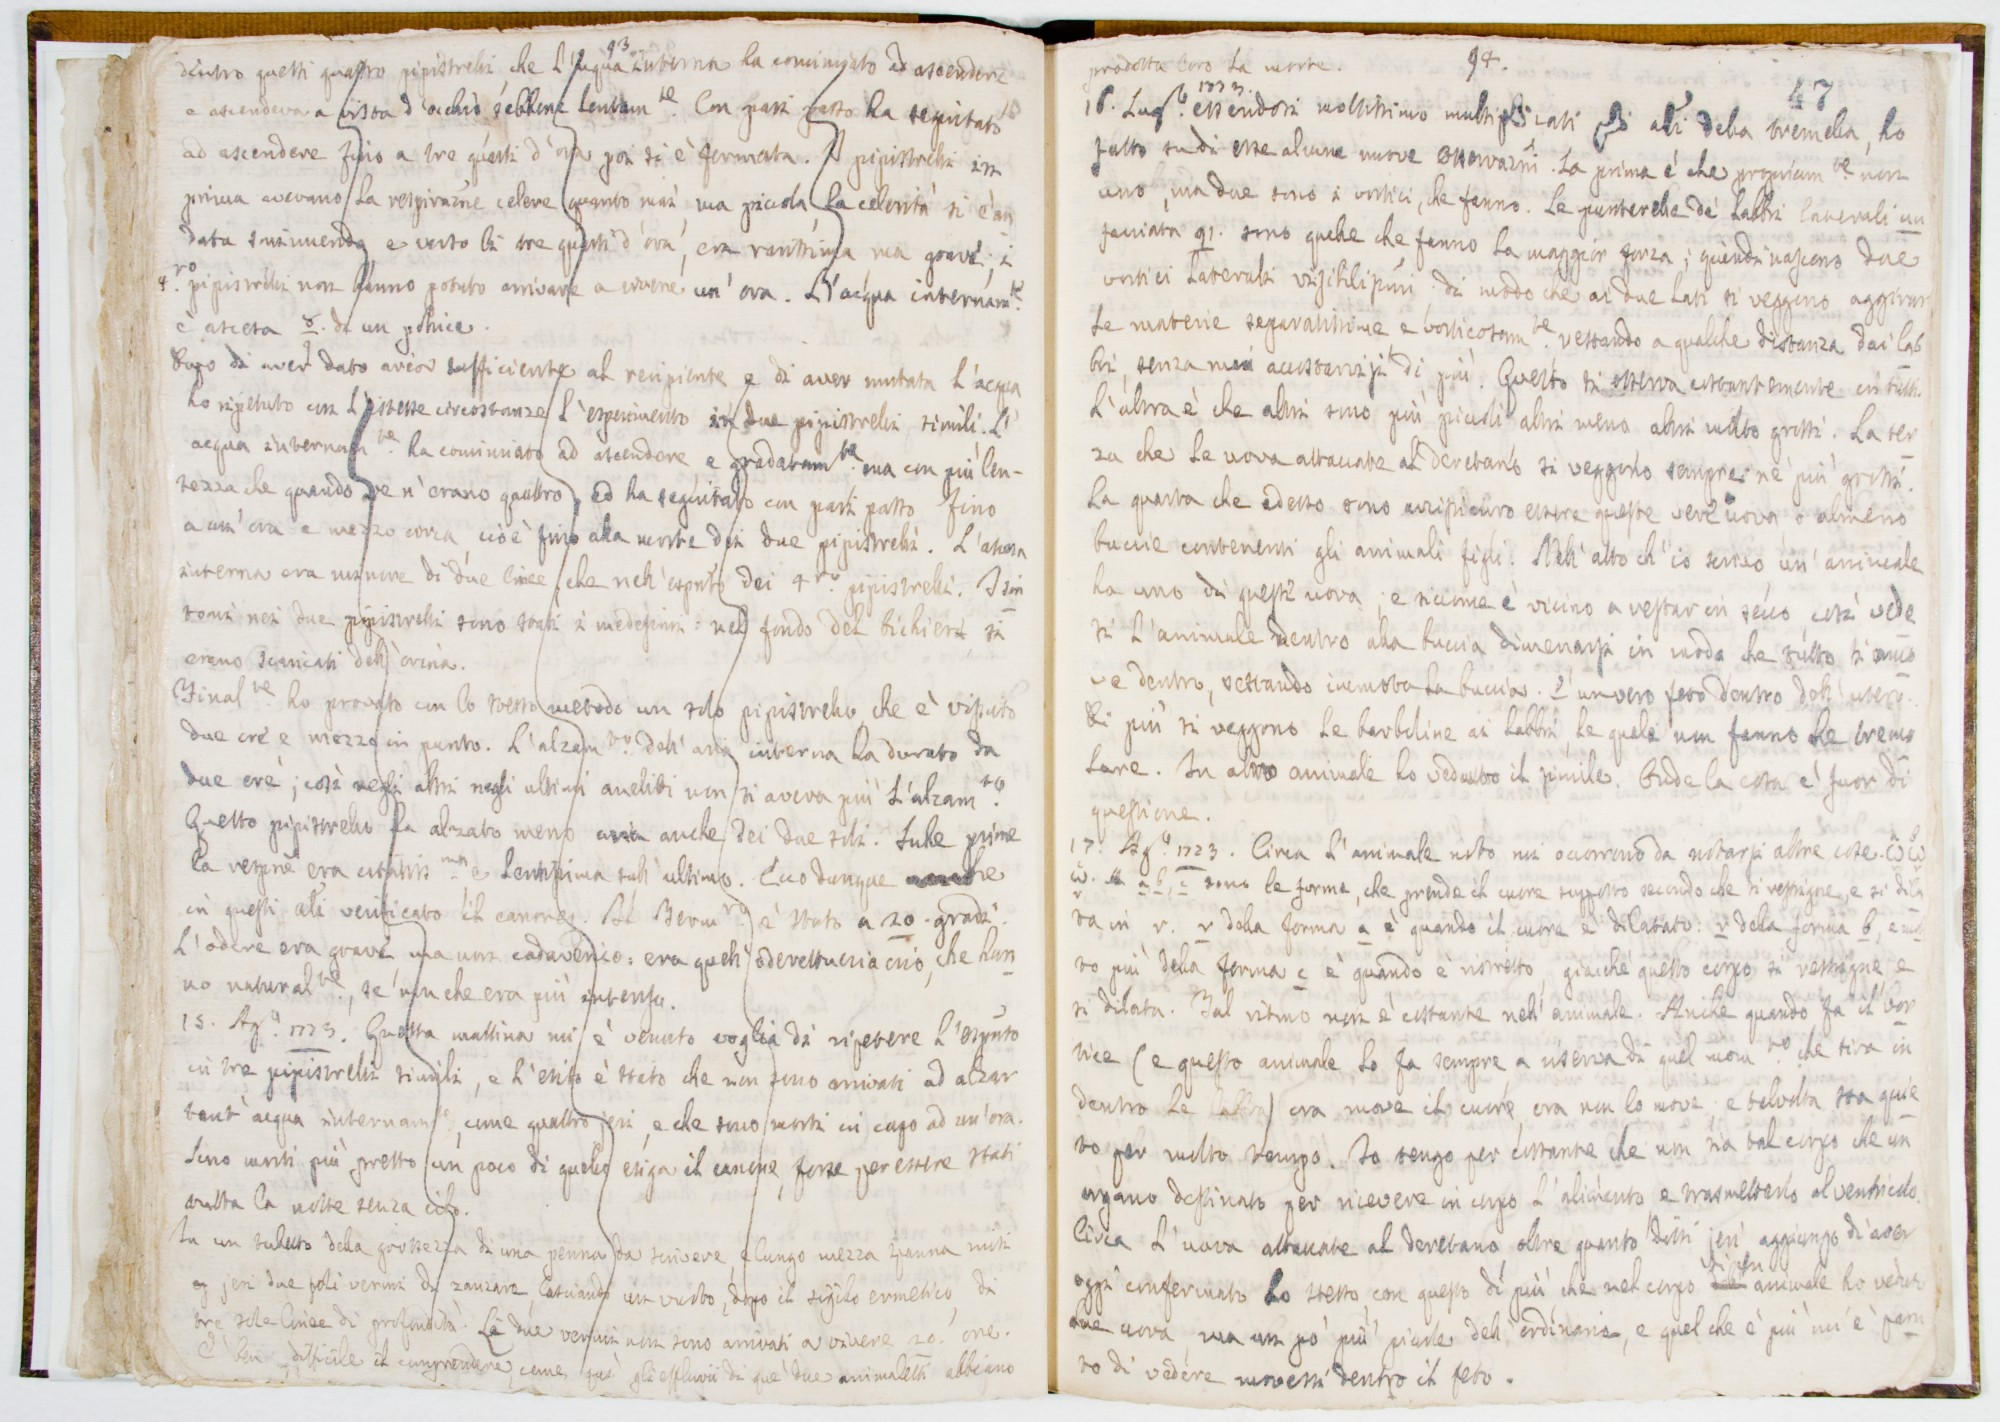 93.
dentro questi quattro pipistrelli che l'aqua interna ha cominciato ad ascendere
e ascendeva a vista d'occhio sebbene lentam.te Con pari passo ha seguitato
ad ascendere fino a tre quarti d'ora poi si è fermata. I pipistrelli in
prima avevano la respirazne celere quanto mai, ma piccola, la celerità si è an
data sminuendo, e verso li tre quarti d'ora, era rarissima ma grave; i
4.ro pipistrelli non hanno potuto arrivare a vivere un'ora. L'acqua internam.te
è ascesa di un pollice.
Dopo di aver dato aria sufficiente al recipiente e di aver mutata l'acqua
ho ripetuto con l'istesse circostanze l'esperimento in due pipistrelli simili. L'
acqua internam.te ha cominciato ad ascendere e gradatam.te ma con più len-
tezza che quando ve n'erano quattro, ed ha seguitato con pari passo fino
a un'ora e mezzo circa, cioè fino alla morte dei due pipistrelli. L'ascesa
interna era minore di due linee che nell'espto dei 4.ro pipistrelli. I sin
tomi nei due pipistrelli sono stati i medesimi: nel fondo del bichiere si
erano scaricati dell'orina.
Final.te ho provato con lo stesso metodo un solo pipistrello, che è vissuto
due ore e mezzo in punto. L'alzam.to dell'aria interna ha durato da
due ore; così negli altri negli ultimi aneliti non si aveva più l'alzam.to
Questo pipistrello ha alzato meno anche dei due soli. Sulle prime
la respne era celeriss.ma e lentissima sull'ultimo. Ecco dunque anche
in questi ali verificato il canone. Il Term.ro è stato a 20. gradi.
L'odore era grave ma non cadaverico: era quell'odorettucciaccio, che han
no natural.te, se non che era più intenso.
15. Ag.o 1773. Questa mattina mi è venuto voglia di ripetere l'espto
in tre pipistrelli simili, e l'esito è stato che non sono arrivati ad alzar
tant'acqua internam.te, come quattro jeri, e che sono morti in capo ad un'ora.
Sono morti più presto un poco di quello esiga il canone, forse per essere stati
tutta la notte senza cibo.
In un tubetto della grossezza di una penna da scrivere, e lungo mezza spanna misi
jeri due soli vermi di zanzara, lasciando un vuoto, dopo il sigillo ermetico, di
tre sole linee di profondità. Li due vermi non sono arrivati a vivere 20. ore.
È ben difficile il comprendere, come quì gli effluvii di que' due animaletti abbiano
94.
47
prodotta loro la morte.
16. Lug.o 1773. Essendosi moltissimo multiplicati gli ali della tremella, ho
fatto su di esse alcune nuove osservazni. La prima è che propriam.te non
uno, ma due sono i vortici, che fanno. Le punterelle de' labbri laterali in
facciata 91. sono quelle che fanno la maggior forza; quindi nascono due
vortici laterali visibilissimi: di modo che ai due lati si veggono aggirar
le materie separatissime e vorticosam.te restando a qualche distanza dai lab
bri, senza mai accostarvisi di più. Questo si osserva costantemente in tutti.
L'altra è che altri sono più piccoli altri meno altri molto grossi. La ter
za che le uova attaccate al deretano si veggono sempre ne' più grossi.
La quarta che adesso sono sicurissimo essere queste vere uova o almeno
buccie contenenti gli animali figli. Nell'atto ch'io scrivo un'animale
ha uno di questi uova; e siccome è vicino a restar in secco, così vede
si l'animale dentro alla buccia dimenarsi in modo che tutto si muo
ve dentro, restando immota la buccia. È un vero feto dentro dell'utero.
Di più si veggono le barboline ai labbri, le quali non fanno che tremo
lare. In altro animale ho veduto il simile. Onde la cosa è fuor di
questione.
17. Ag.o 1773. Circa l'animale noto mi occorrono da notarsi altre cose.
a b, c sono le forme, che prende il cuore supposto secondo che si restrigne, e si dila
ta in r. r della forma a è quando il cuore è dilatato: r della forma b, e mol
to più della forma c è quando è ristretto, giacchè questo corpo si restrigne e
si dilata. Tal ritmo non è costante nell'animale. Anche quando fa il vor
tice (e questo animale lo fa sempre a riserva di quel mom.to che tira in
dentro le labbra) ora move il cuore, ora non lo move e talvolta sta quie
to per molto tempo. Io tengo per costante che non sia tal corpo che un
organo destinato per ricevere in corpo l'alimento, e trasmetterlo al ventricolo.
Circa l'uova attaccate al deretano oltre quanto dissi jeri aggiungo di aver
oggi confermato lo stesso, con questo di più che nel corpo di un animale ho vedute
due uova, ma un po' più picciole dell'ordinario, e quel che è più mi è paru
to di vedere moversi dentro il feto.